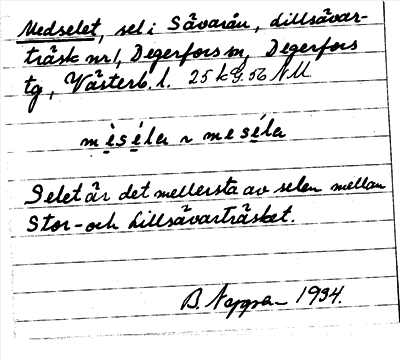 Medselet, sel i Sävarån, Lillsävar-
träsk nr 1, Degerfors sn, Degerfors
tg, Västerb. l. 25 k G. 56 NM
mèsélạ ~ mesélạ
Selet är det mellersta av selen mellan
Stor- och Lillsävarträsket.
B. 1934.